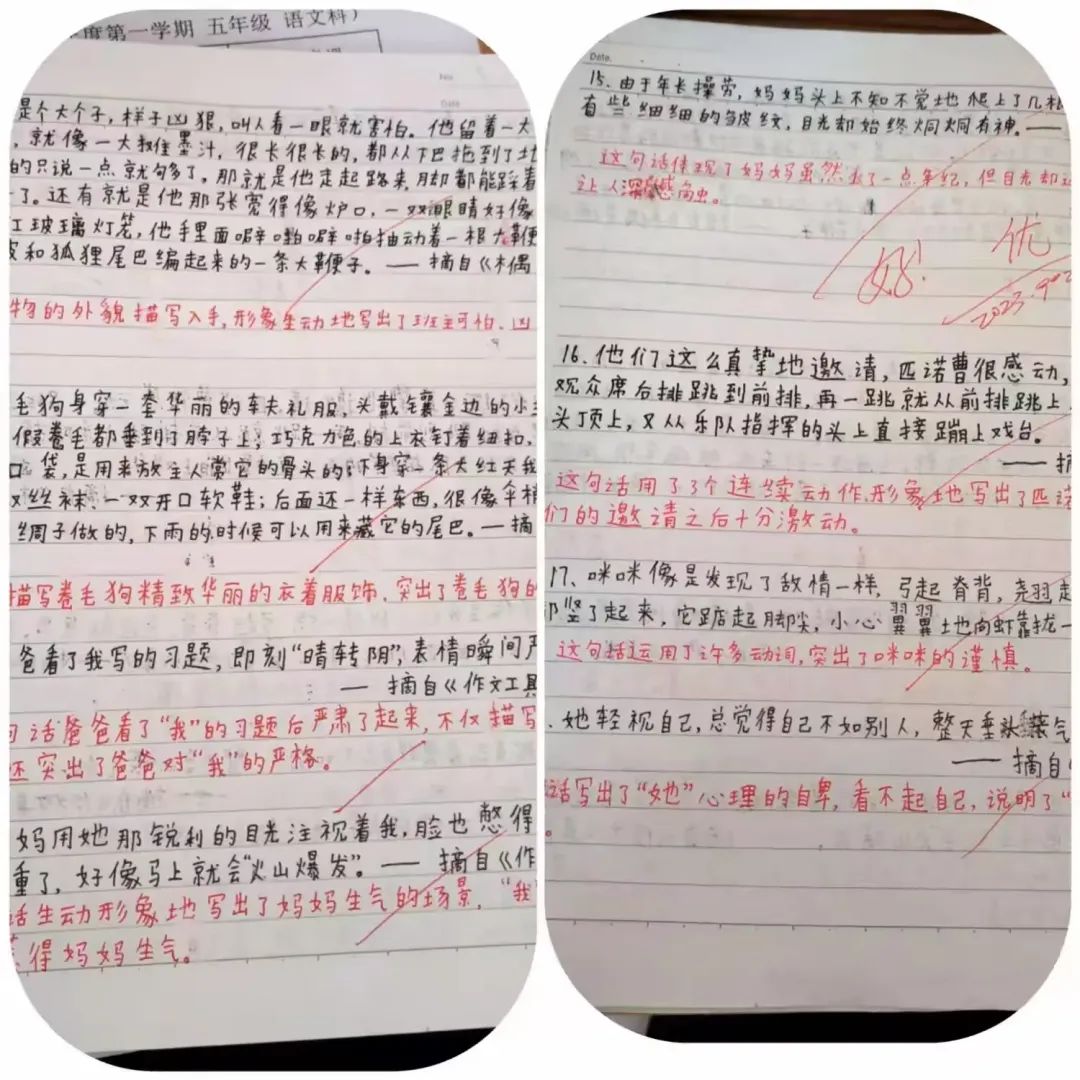 度第一学期 五年级 语文科）
Date
是个大个子，样子凶狠，叫人看一眼就害怕。他留着一大
，就像一大摊墨汁，很长很长的，都从下巴拖到了地
的只说一点就够多了，那就是他走起路来，脚都能踩着
了。还有就是他那张宽得像炉口，一双眼睛好像
工玻璃灯笼，他手里面噼啪噼啪抽动着一根大鞭
皮和狐狸尾巴编起来的一条大鞭子。——摘自《木偶
物的外貌描写入手，形象生动地写出了班主可怕、凶
毛狗身穿一套华丽的车夫礼服，头戴镶金边的小三
假卷毛都垂到了脖子上；巧克力色的上衣钉着纽扣，
口袋，是用来放主人赏它的骨头的；下身穿一条大红天我
双丝袜、一双开口软鞋；后面还一样东西，很像伞
绸子做的，下雨的时候可以用来藏它的尾巴。——摘
描写卷毛狗精致华丽的衣着服饰，突出了卷毛狗的
爸看了我写的习题，即刻“晴转阴”，表情瞬间严
——摘自《作文工具
话爸爸看了“我”的习题后严肃了起来，不仅描写
还突出了爸爸对“我”的严格。
妈用她那锐利的目光注视着我，脸也憋得
重了，好像马上就会“火山爆发”。——摘自《作
话生动形象地写出了妈妈生气的场景，“我
得妈妈生气。
Date.
15. 由于年长操劳，妈妈头上不知不觉地爬上了几根
有些细细的皱纹，目光却始终炯炯有神。——
这句话体现了妈妈虽然长了一点年纪，但目光却
让人深感触。
好！ 优
2023.9
16. 他们这么真挚地邀请，匹诺曹很感动，
观众席后排跳到前排，再一跳就从前排跳上
头顶上，又从乐队指挥的头上直接蹦上戏台。
——摘
这句话用了3个连续动作，形象地写出了匹诺
们的邀请之后十分激动。
17. 咪咪像是发现了敌情一样，弓起脊背，尧羽走
都竖了起来，它踮起脚尖，小心翼翼地向虾靠拢一
这句话运用了许多动词，突出了咪咪的谨慎。
她轻视自己，总觉得自己不如别人，整天垂头丧气
——摘自
话写出了“她”心理的自卑，看不起自己，说明了“